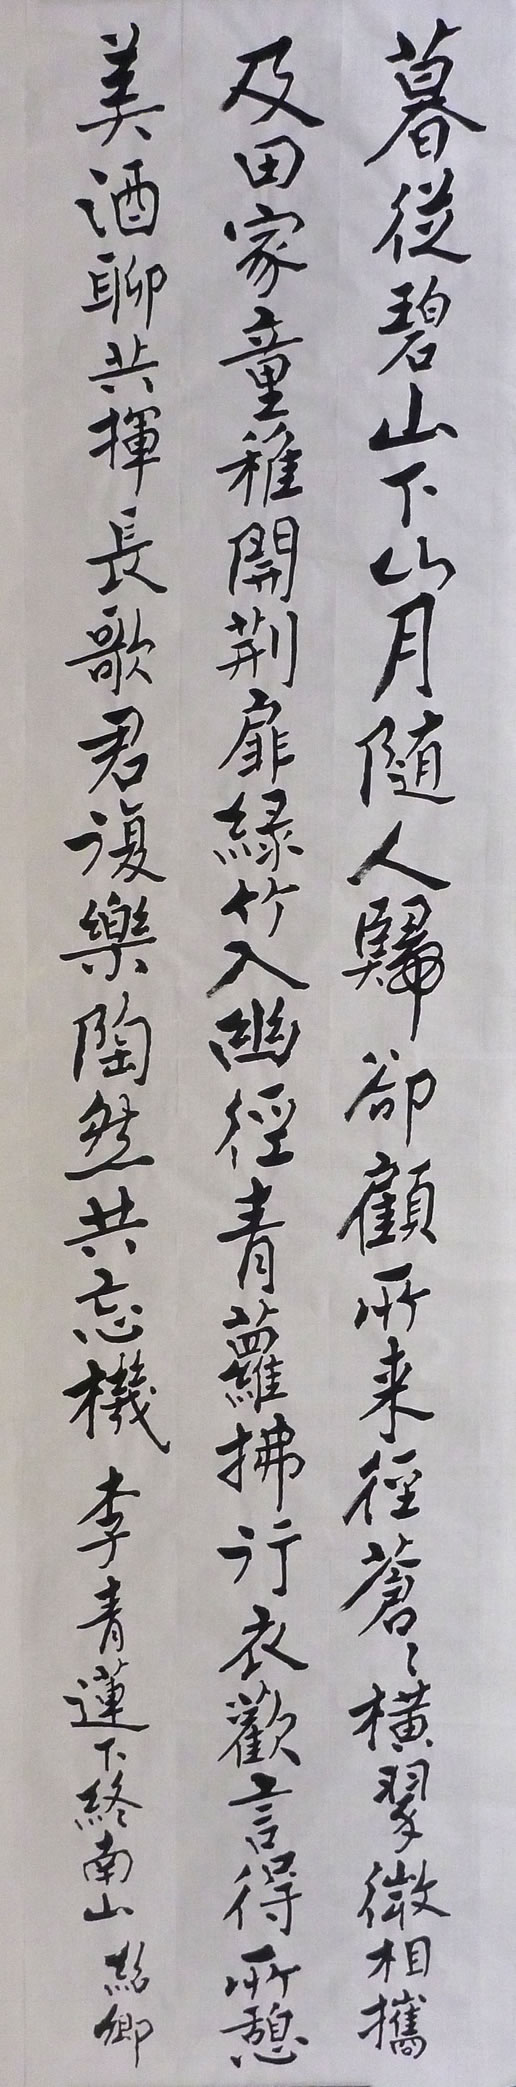 暮從碧山下山月随人歸卻顧所来徑蒼〻橫翠微相攜
及田家童稚開荆扉緑竹入幽徑青蘿拂行衣歡言得所憩
美酒聊共揮長歌君復樂陶然共忘機 李青蓮下終南山 卿